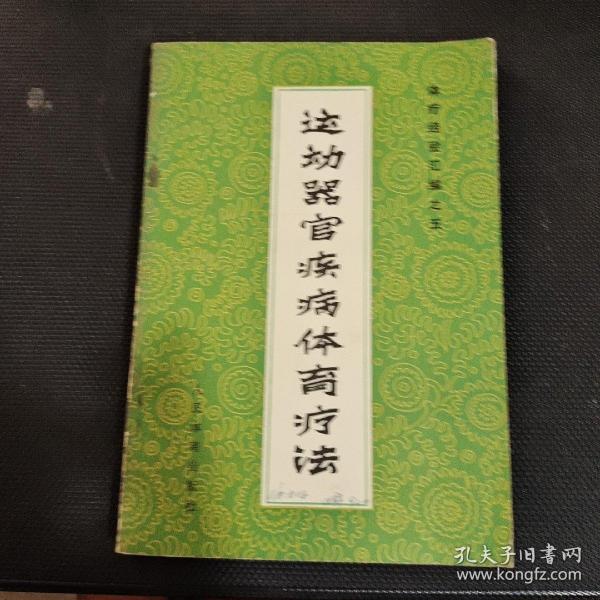 体疗经验汇编之五
运动器官疾病体育疗法
人民体育出版社
孔夫子旧书网
www.kongfz.com